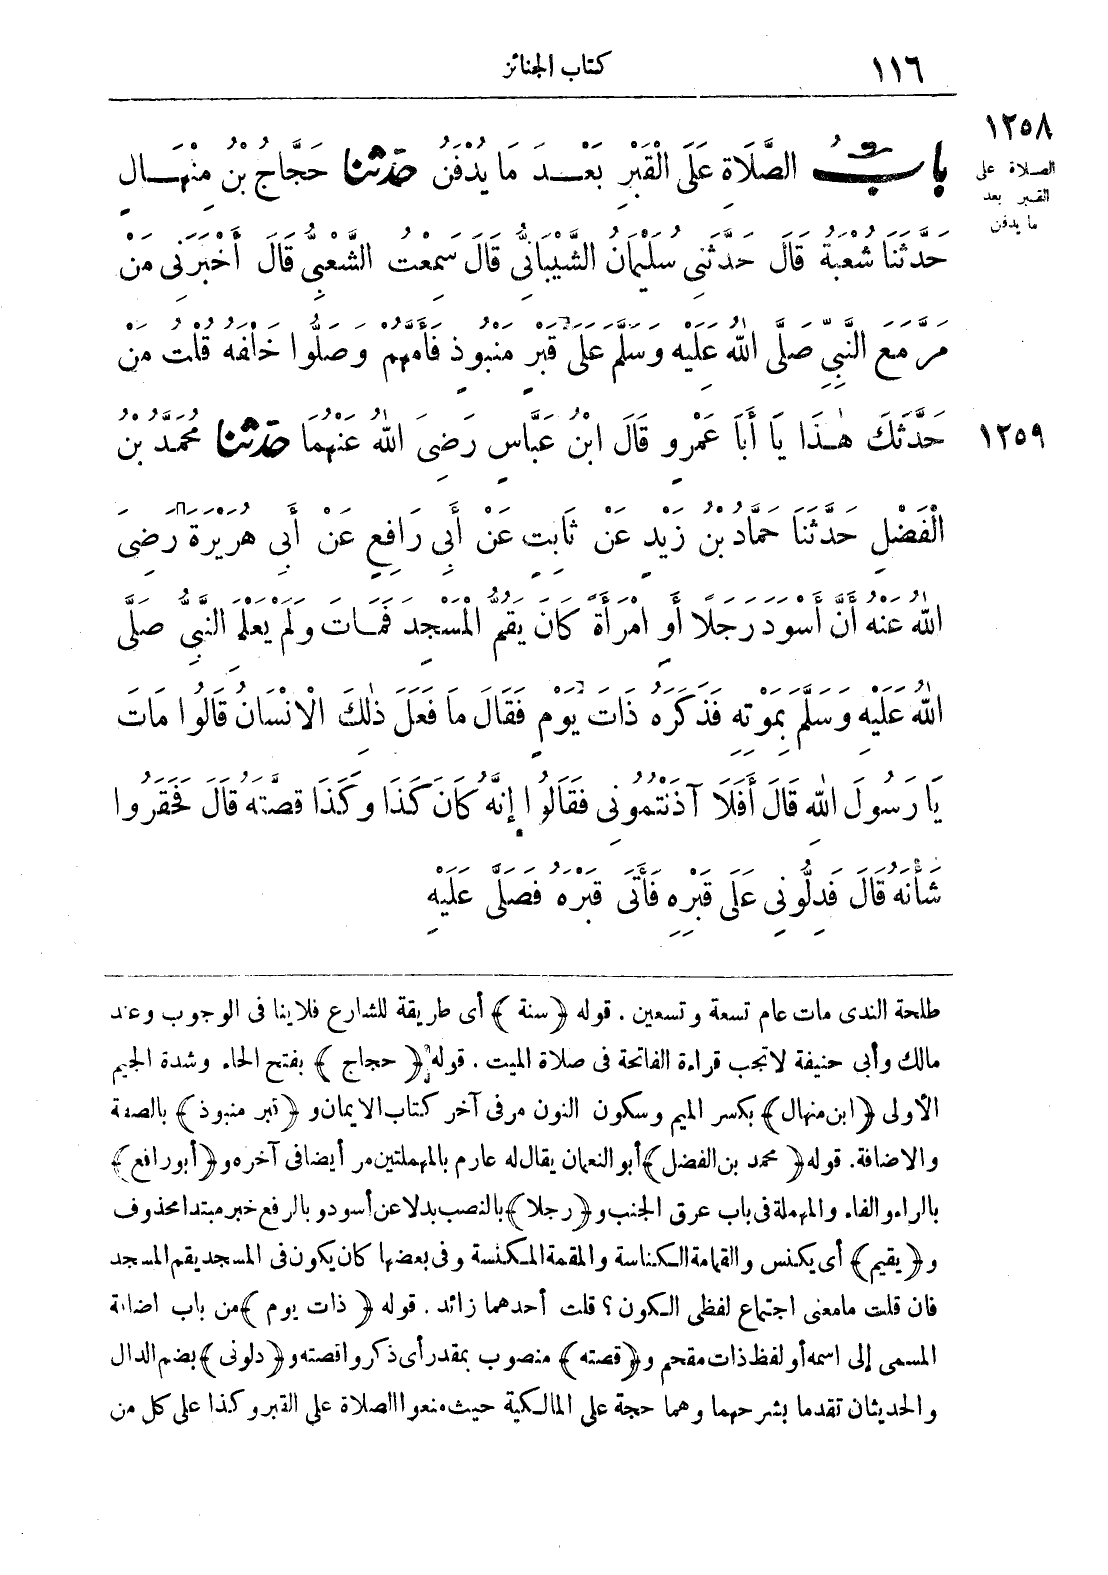 ١١٦
كتاب الجنائز
١٢٥٨
الصلاة على
القبر بعد
ما يدفن
بابُ الصَّلَاةِ عَلَى الْقَبْرِ بَعْدَ مَا يُدْفَنُ حَدَّثَنَا حَجَّاجُ بْنُ مِنْهَالٍ
حَدَّثَنَا شُعْبَةُ قَالَ حَدَّثَنِي سُلَيْمَانُ الشَّيْبَانِيُّ قَالَ سَمِعْتُ الشَّعْبِيَّ قَالَ أَخْبَرَنِي مَنْ
مَرَّ مَعَ النَّبِيِّ صَلَّى اللهُ عَلَيْهِ وَسَلَّمَ عَلَى قَبْرٍ مَنْبُوذٍ فَأَمَّهُمْ وَصَلَّوْا خَلْفَهُ قُلْتُ مَنْ
حَدَّثَكَ هٰذَا يَا أَبَا عَمْرٍو قَالَ ابْنُ عَبَّاسٍ رَضِيَ اللهُ عَنْهُمَا حَدَّثَنَا مُحَمَّدُ بْنُ
١٢٥٩
الْفَضْلِ حَدَّثَنَا حَمَّادُ بْنُ زَيْدٍ عَنْ ثَابِتٍ عَنْ أَبِي رَافِعٍ عَنْ أَبِي هُرَيْرَةَ رَضِيَ
اللهُ عَنْهُ أَنَّ أَسْوَدَ رَجُلًا أَوِ امْرَأَةً كَانَ يَقُمُّ الْمَسْجِدَ فَمَاتَ وَلَمْ يَعْلَمِ النَّبِيُّ صَلَّى
اللهُ عَلَيْهِ وَسَلَّمَ بِمَوْتِهِ فَذَكَرَهُ ذَاتَ يَوْمٍ فَقَالَ مَا فَعَلَ ذٰلِكَ الْإِنْسَانُ قَالُوا مَاتَ
يَا رَسُولَ اللهِ قَالَ أَفَلَا آذَنْتُمُونِي فَقَالُوا إِنَّهُ كَانَ كَذَا وَكَذَا قِصَّتَهُ قَالَ فَحَقَرُوا
شَأْنَهُ قَالَ فَدُلُّونِي عَلَى قَبْرِهِ فَأَتَى قَبْرَهُ فَصَلَّى عَلَيْهِ
طلحة الندى مات عام تسعة وتسعين . قوله ﴿سنة﴾ أى طريقة للشارع فلا ينافى الوجوب وعند
مالك وأبى حنيفة لاتجب قراءة الفاتحة فى صلاة الميت . قوله ﴿حجاج﴾ بفتح الحاء وشدة الجيم
الأولى ﴿ابن منهال﴾ بكسر الميم وسكون النون مر فى آخر كتاب الايمان و﴿قبر منبوذ﴾ بالصفة
والاضافة. قوله ﴿محمد بن الفضل﴾ أبو النعمان يقال له عارم بالمهملتين مر أيضا فى آخره و﴿أبو رافع﴾
بالراء والفاء والمهملة فى باب عرق الجنب و﴿رجلا﴾ بالنصب بدلا عن أسود وبالرفع خبر مبتدا محذوف
و﴿يقيم﴾ أى يكنس والقمامة الكناسة والمقمة المكنسة وفى بعضها كان يكون فى المسجد يقم المسجد
فان قلت مامعنى اجتماع لفظى الكون ؟ قلت أحدهما زائد . قوله ﴿ذات يوم﴾ من باب اضافة
المسمى إلى اسمه أو لفظ ذات مقحم و﴿قصته﴾ منصوب بمقدر أى ذكروا قصته و﴿دلونى﴾ بضم الدال
والحديثان تقدما بشرحهما وهما حجة على المالكية حيث منعوا الصلاة على القبر وكذا على كل من